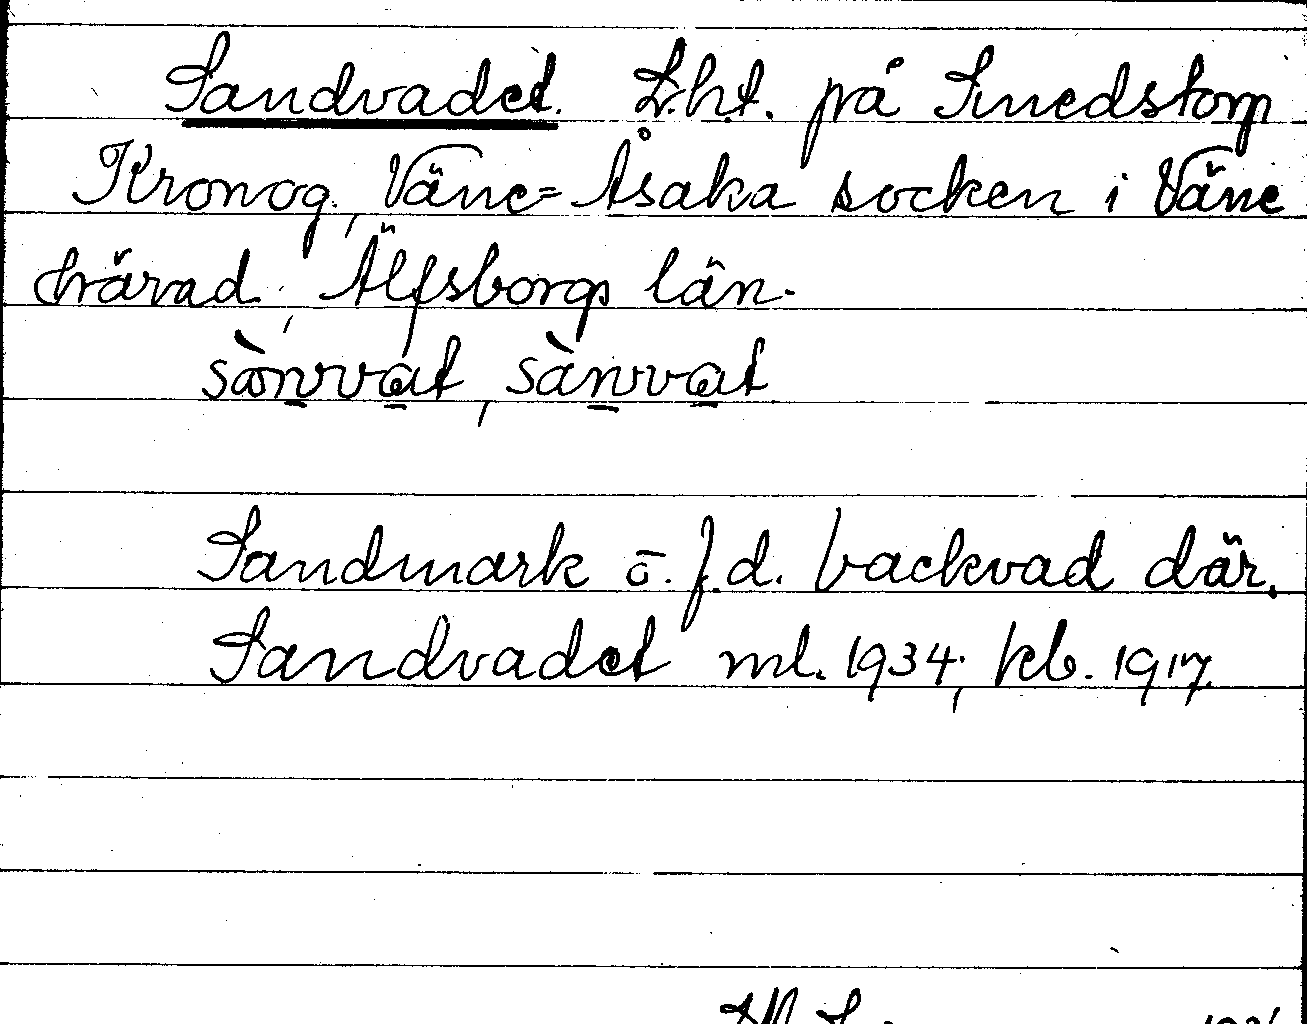 Sandvadet. L.h.t. på Smedstorp
Kronog., Väne=Åsaka socken i Väne
härad, Älfsborgs län.
sànvvat, sànvvat
Sandmark ō. f.d. backvad där.
Sandvadet ml. 1934; kb. 1917.